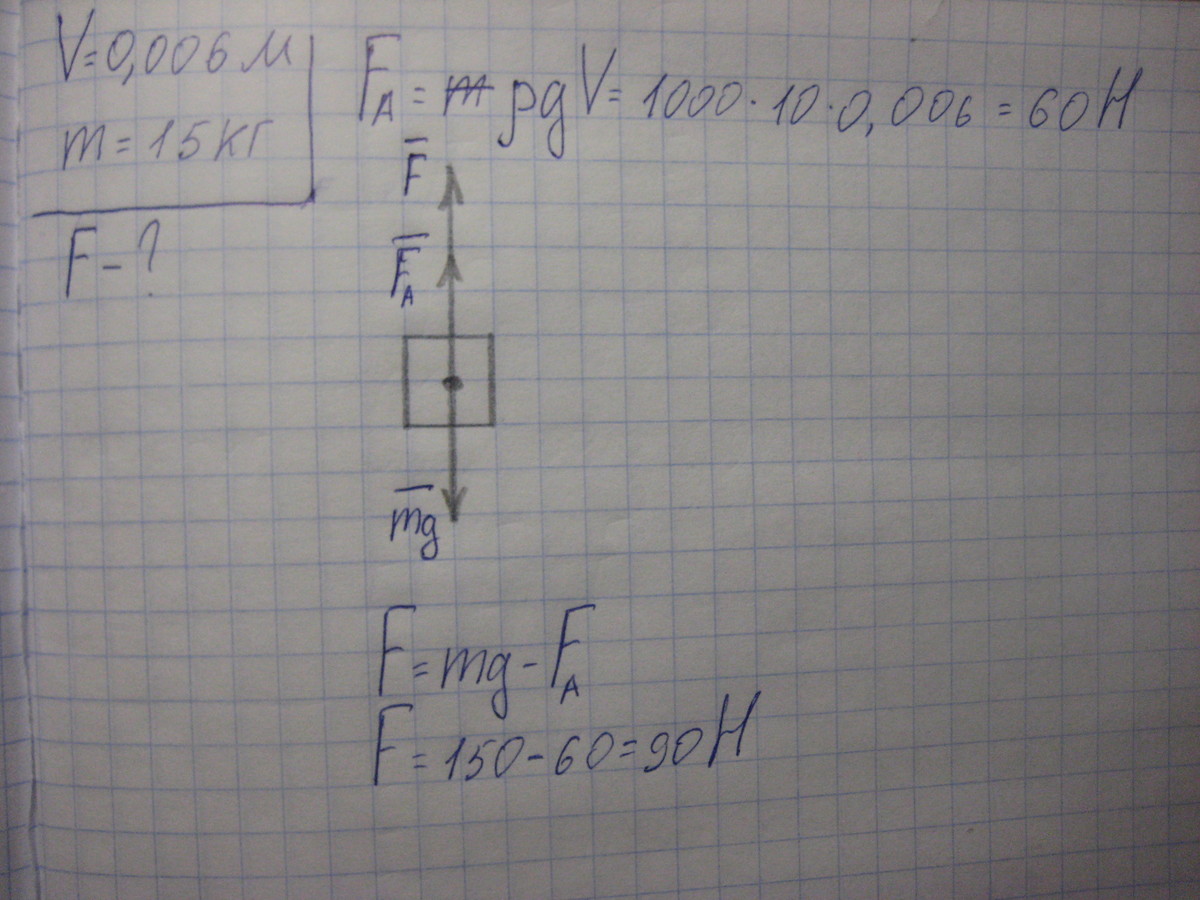 V=0,006 м
m=15 кг
F-?
F_A = m ρgV = 1000·10·0,006 = 60 Н
F̅
F̅_A
m̅g̅
F = mg - F_A
F = 150 - 60 = 90 Н